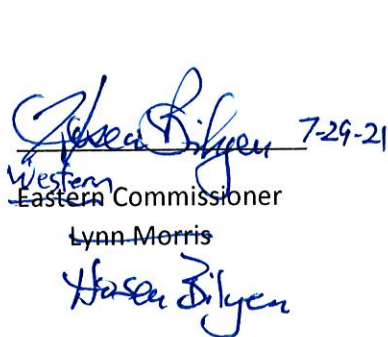 Hosea Bilyeu 7-29-21
Western
Eastern Commissioner
Lynn Morris
Hosea Bilyeu